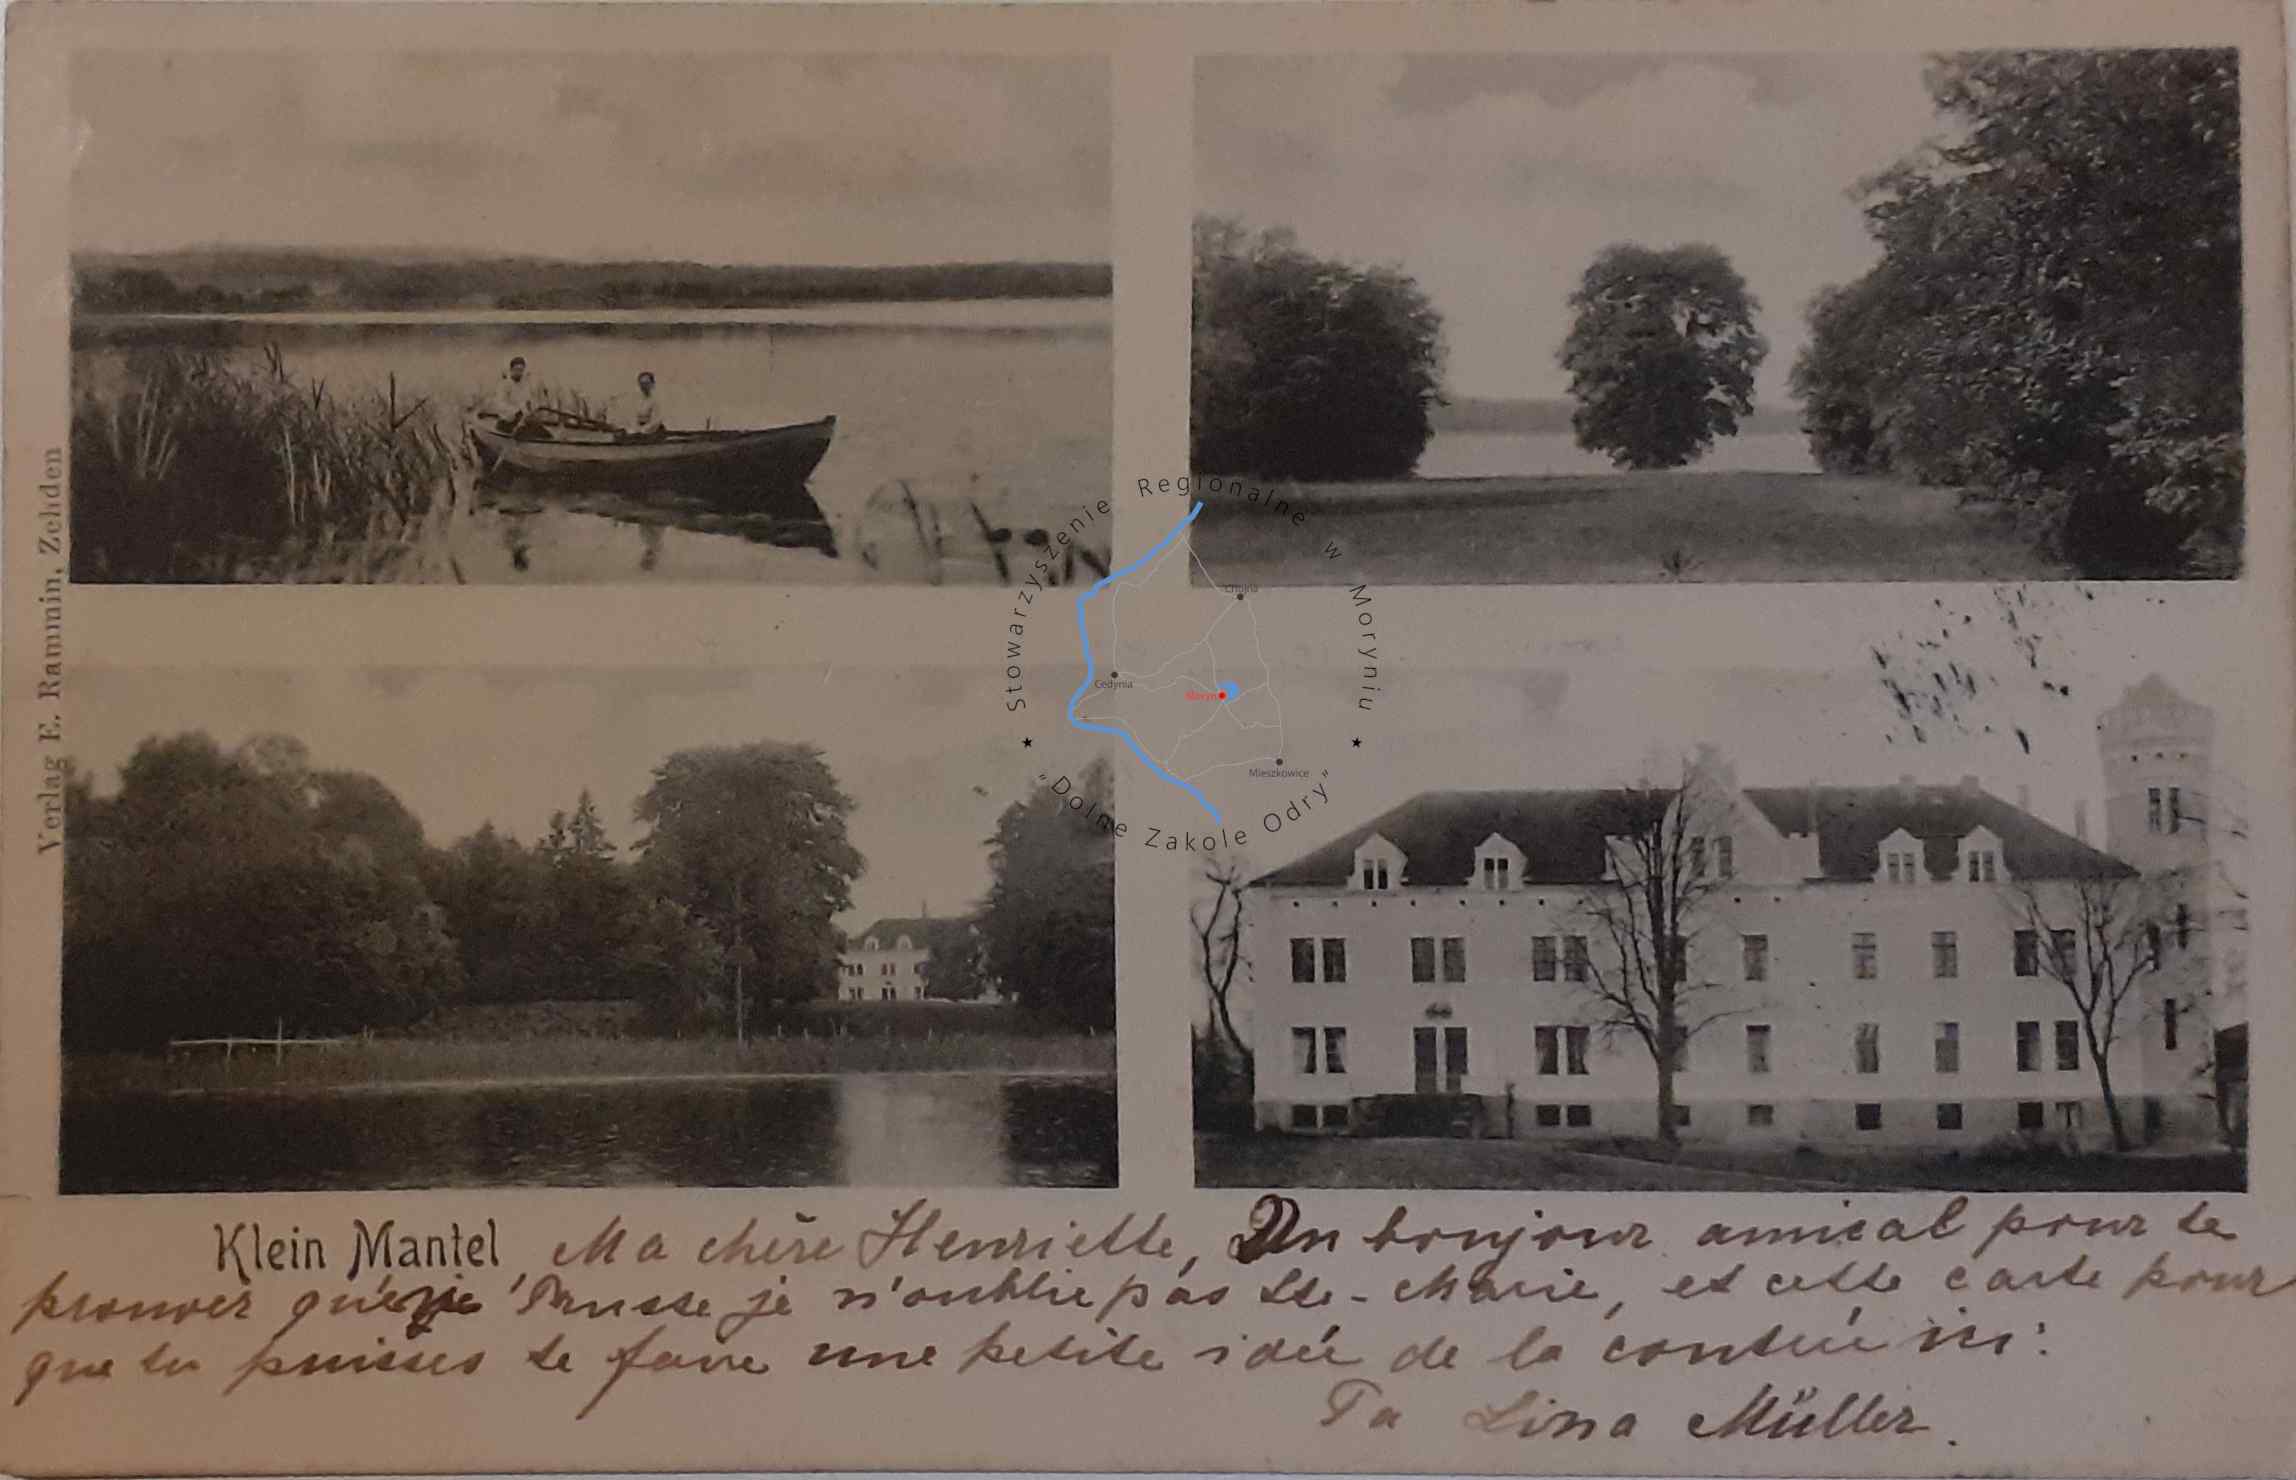 Verlag E. Rammin, Zehden
Stowarzyszenie Regionalne w Moryniu
Chojna
Cedynia
Moryń
Mieszkowice
"Dolne Zakole Odry"
Klein Mantel Ma chère Henriette, Un bonjour amical pour te
prouver qu'en Prusse je n'oublie pas Ste-Marie, et cette carte pour
que tu puisses te faire une petite idée de la contrée ici:
Ta Lina Müller.